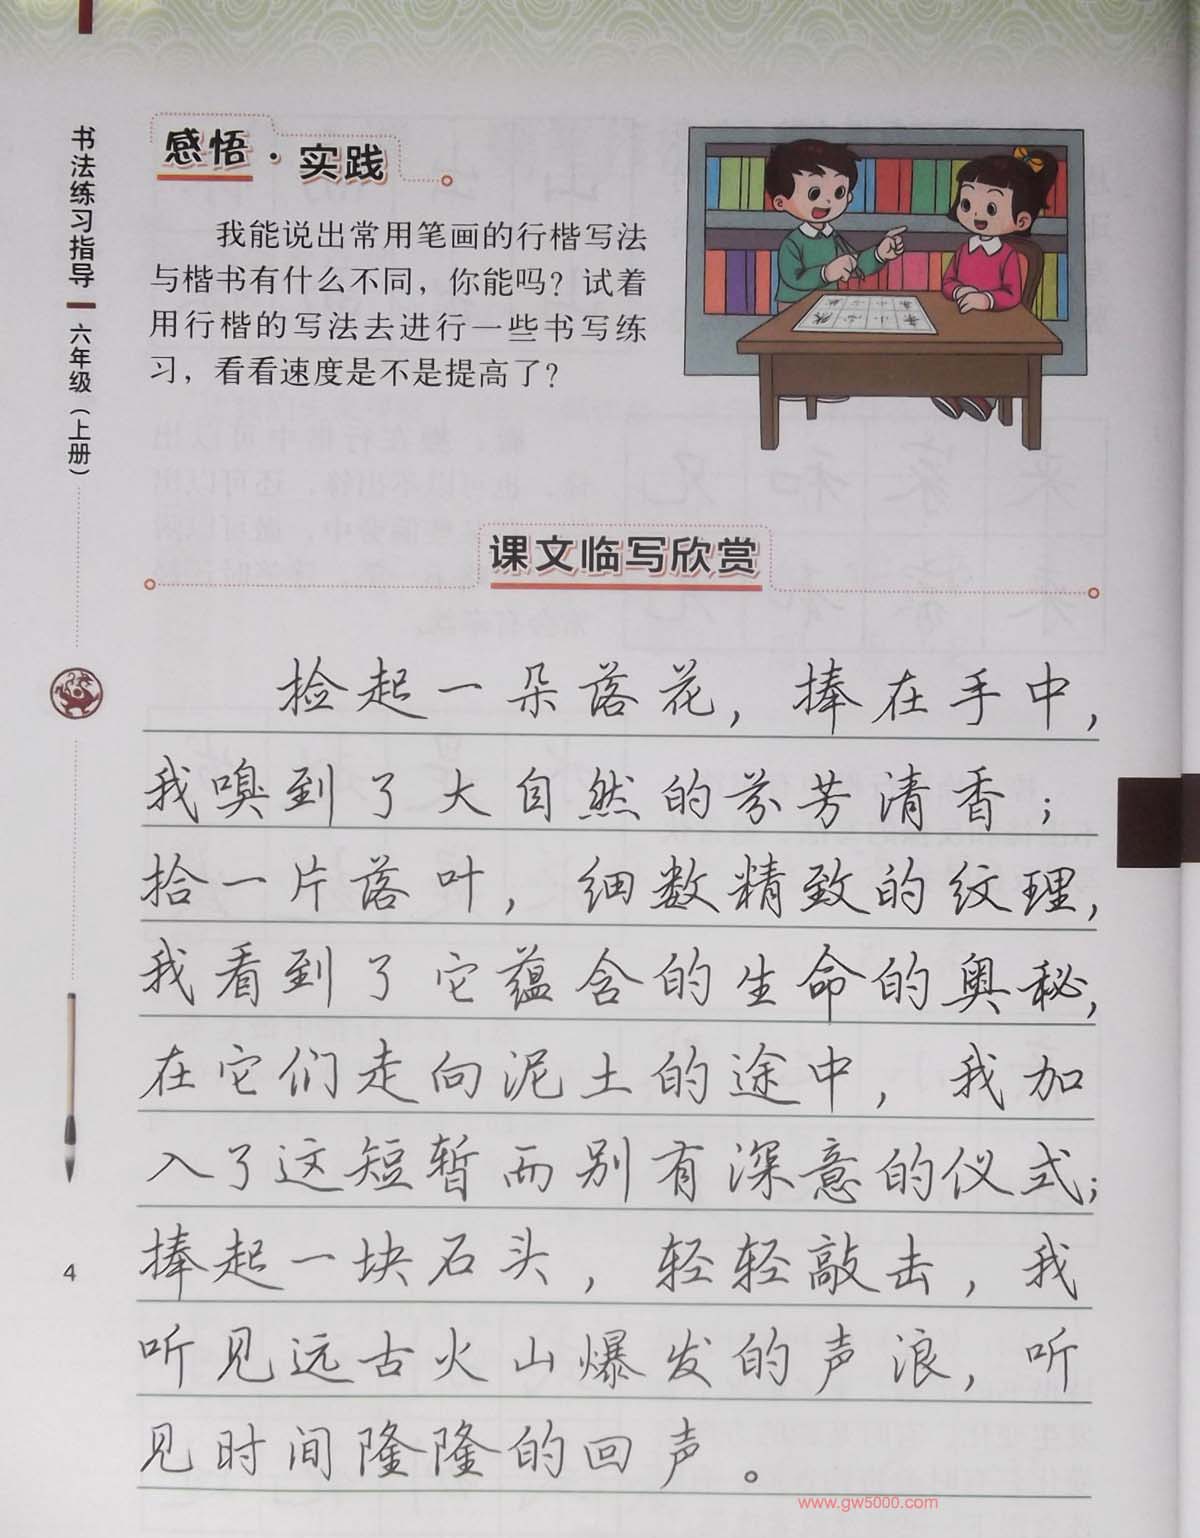 书法练习指导
六年级（上册）
感悟·实践
我能说出常用笔画的行楷写法
与楷书有什么不同，你能吗？试着
用行楷的写法去进行一些书写练
习，看看速度是不是提高了？
课文临写欣赏
捡起一朵落花，捧在手中，
我嗅到了大自然的芬芳清香；
拾一片落叶，细数精致的纹理，
我看到了它蕴含的生命的奥秘，
在它们走向泥土的途中，我加
入了这短暂而别有深意的仪式；
捧起一块石头，轻轻敲击，我
听见远古火山爆发的声浪，听
见时间隆隆的回声。
4
www.gw5000.com